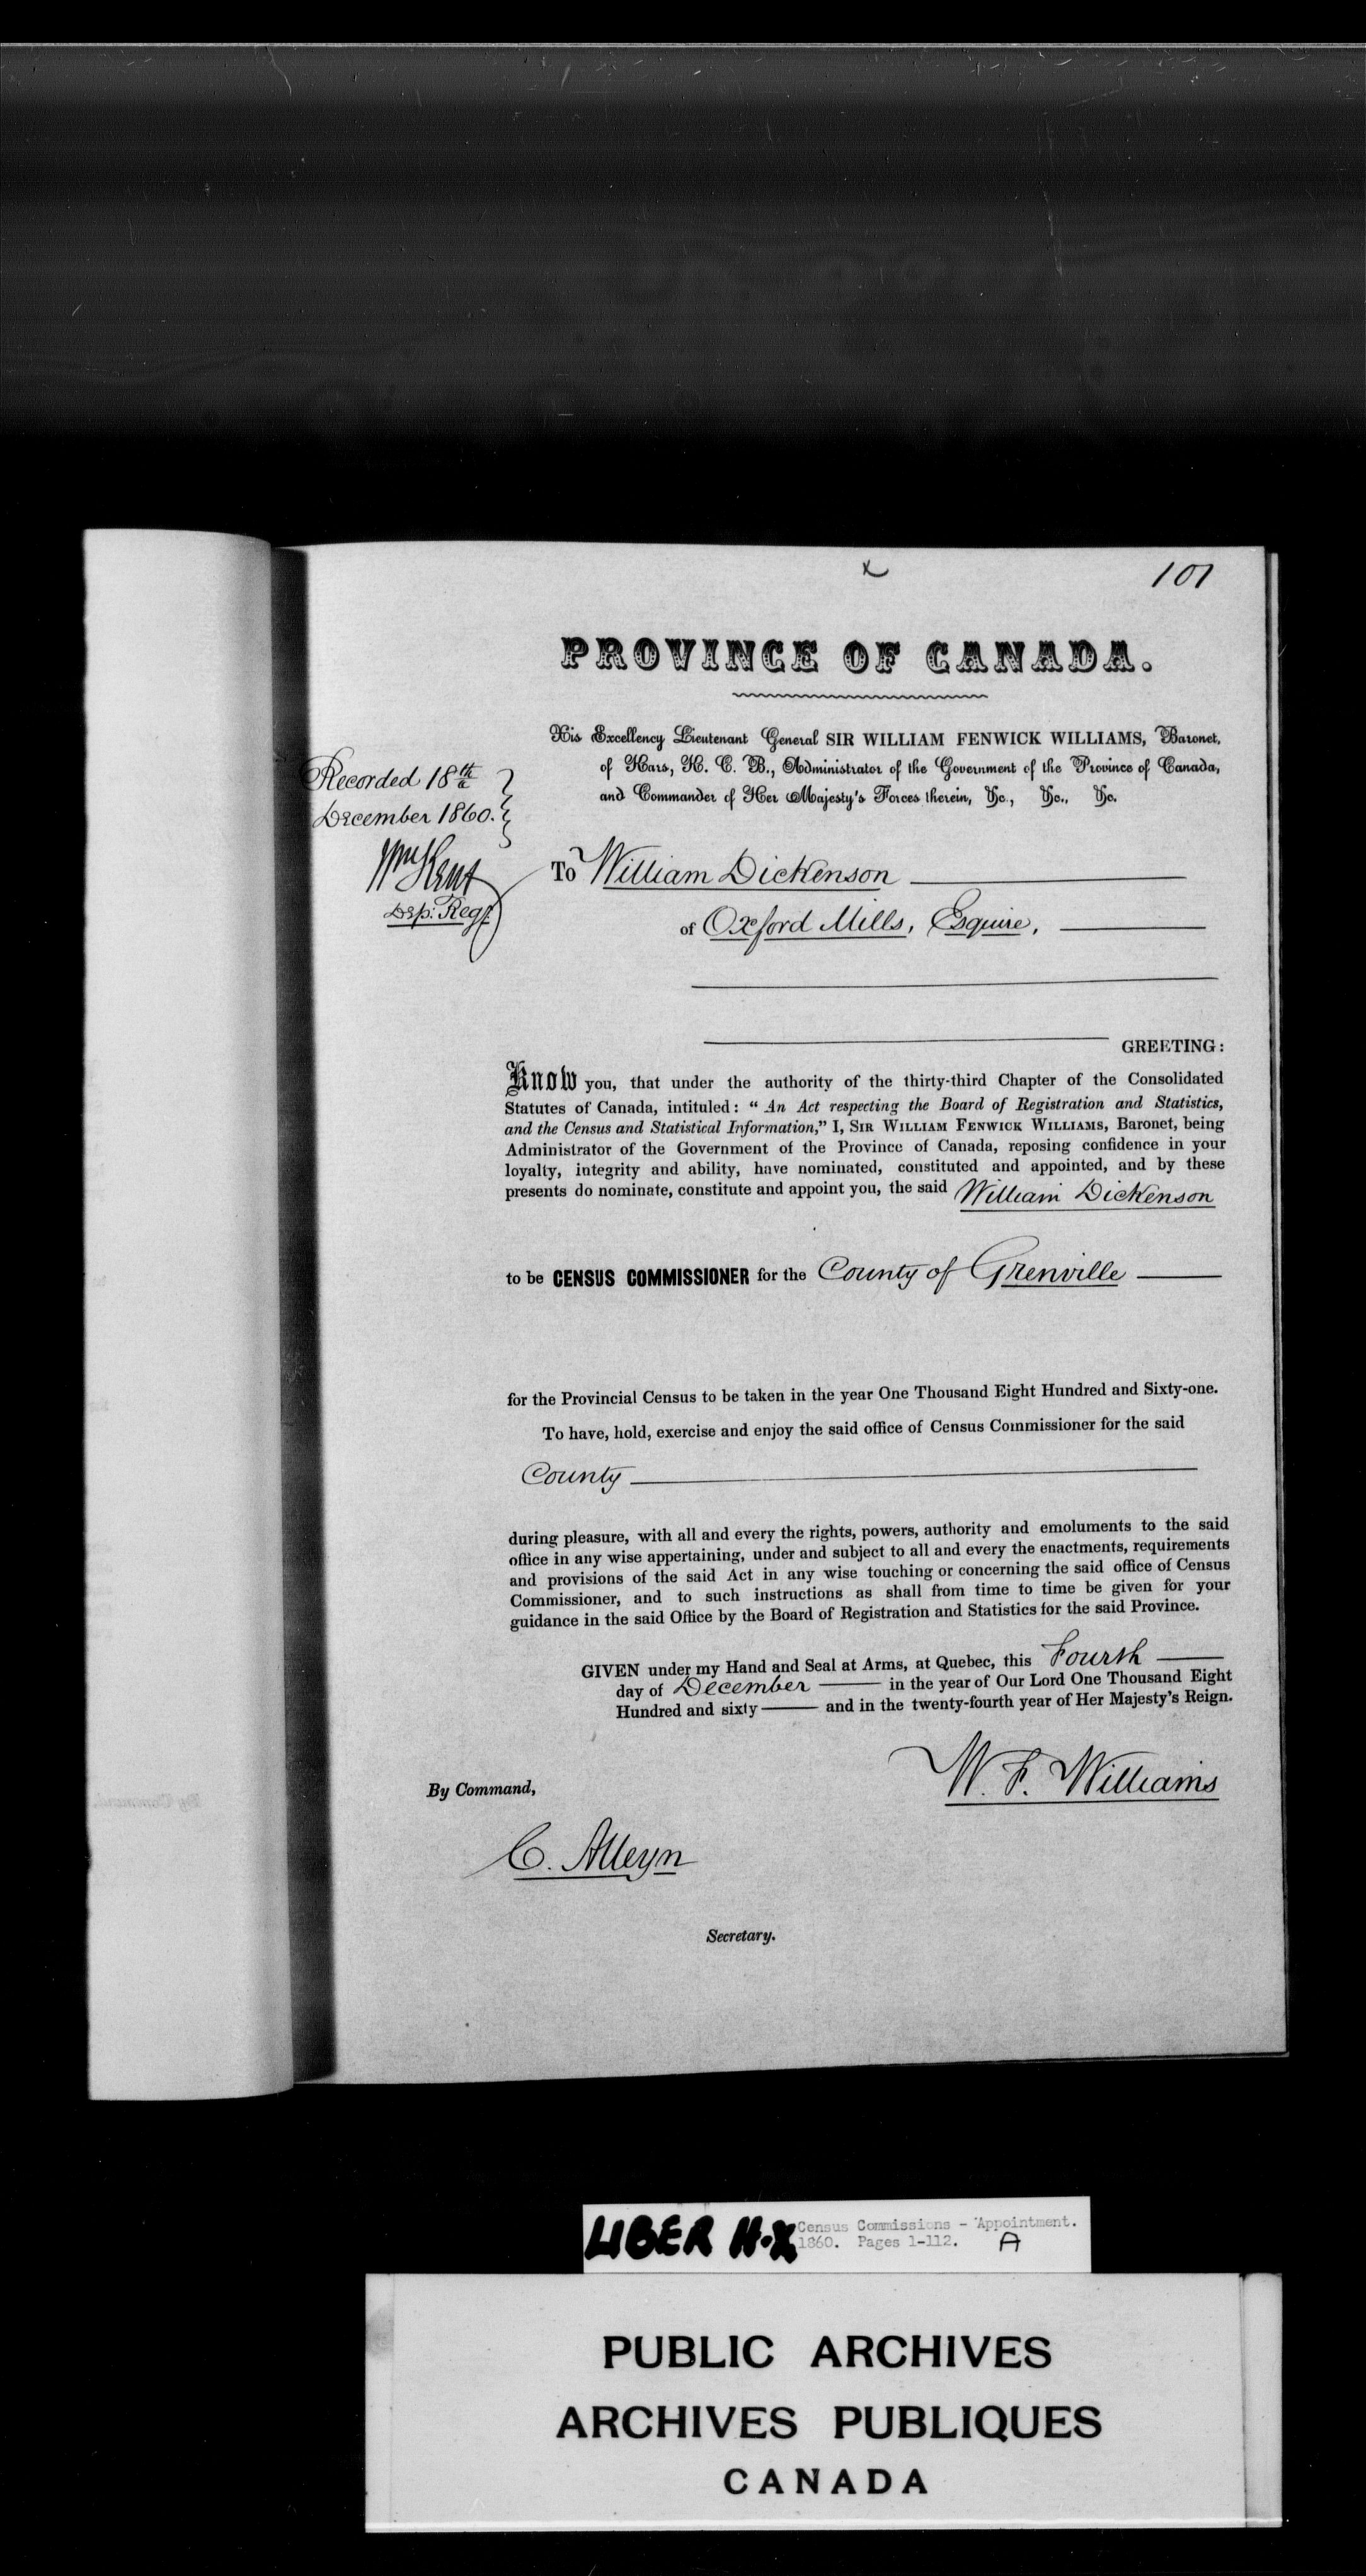 x
101
PROVINCE OF CANADA.
His Excellency Lieutenant General SIR WILLIAM FENWICK WILLIAMS, Baronet,
of Kars, K. C. B., Administrator of the Government of the Province of Canada,
and Commander of Her Majesty's Forces therein, &c., &c., &c.
Recorded 18th
December 1860.
Wm Kent
Dep: Regr
To William Dickenson
of Oxford Mills, Esquire,
GREETING:
Know you, that under the authority of the thirty-third Chapter of the Consolidated
Statutes of Canada, intituled: "An Act respecting the Board of Registration and Statistics,
and the Census and Statistical Information," I, SIR WILLIAM FENWICK WILLIAMS, Baronet, being
Administrator of the Government of the Province of Canada, reposing confidence in your
loyalty, integrity and ability, have nominated, constituted and appointed, and by these
presents do nominate, constitute and appoint you, the said William Dickenson
to be CENSUS COMMISSIONER for the County of Grenville
for the Provincial Census to be taken in the year One Thousand Eight Hundred and Sixty-one.
To have, hold, exercise and enjoy the said office of Census Commissioner for the said
County
during pleasure, with all and every the rights, powers, authority and emoluments to the said
office in any wise appertaining, under and subject to all and every the enactments, requirements
and provisions of the said Act in any wise touching or concerning the said office of Census
Commissioner, and to such instructions as shall from time to time be given for your
guidance in the said Office by the Board of Registration and Statistics for the said Province.
GIVEN under my Hand and Seal at Arms, at Quebec, this Fourth
day of December in the year of Our Lord One Thousand Eight
Hundred and sixty and in the twenty-fourth year of Her Majesty's Reign.
W. F. Williams
By Command,
C. Alleyn
Secretary.
LIBER H-X Census Commissions - Appointment.
1860. Pages 1-112. A
PUBLIC ARCHIVES
ARCHIVES PUBLIQUES
CANADA